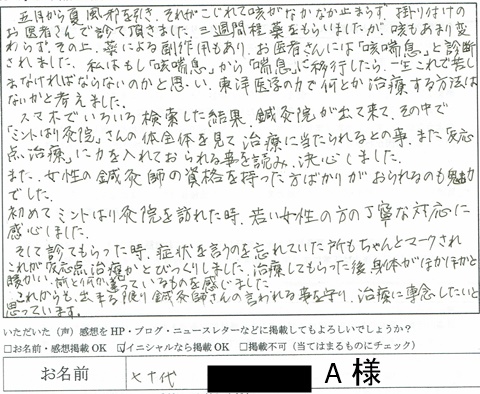 五月から夏風邪を引き、それがこじれて咳がなかなか止まらず、掛り付けの
お医者さんで診て頂きました。三週間程薬をもらいましたが咳もあまり変
わらず、その上、薬による副作用もあり、お医者さんには「咳喘息」と診断
されました。私はもし「咳喘息」から「喘息」に移行したら一生これで苦し
まなければならないのかと思い、東洋医学の力で何とか治療する方法は
ないかと考えました。
スマホでいろいろ検索した結果、鍼灸院が出て来て、その中で
「ミントはり灸院」さんの体全体を見て治療に当たられるとの事、また反応
点治療」に力を入れておられる事を読み、決心しました。
また、女性の鍼灸師の資格を持った方ばかりがおられるのも魅力
でした。
初めてミントはり灸院を訪れた時、若い女性の方の丁寧な対応に
感心しました。
そして診てもらった時、症状を言うのを忘れていた所もちゃんとマークされ
これが反応点治療かとびっくりしました。治療してもらった後身体がほかほかと
暖かい、前と何か違っているものを感じました。
これからも、出来る限り鍼灸師さんの言われる事を守り、治療に専念したいと
思っています。
いただいた（声）感想をHP・ブログ・ニュースレターなどに掲載してもよろしいでしょうか？
□お名前・感想掲載OK ☑イニシャルなら掲載OK □掲載不可（当てはまるものにチェック）
お名前 七十代 A様